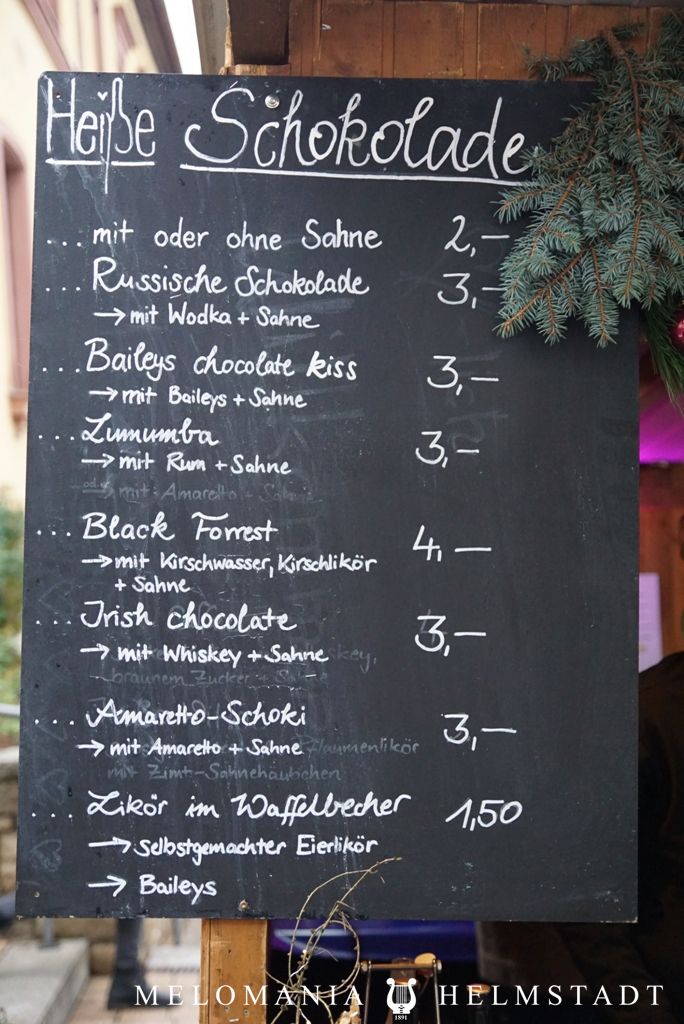 Heiße Schokolade
... mit oder ohne Sahne 2,—
... Russische Schokolade 3,—
→ mit Wodka + Sahne
... Baileys chocolate kiss 3,—
→ mit Baileys + Sahne
... Lumumba 3,—
→ mit Rum + Sahne
oder → mit Amaretto + Sahne
... Black Forrest 4,—
→ mit Kirschwasser, Kirschlikör
+ Sahne
... Irish chocolate 3,—
→ mit Whiskey + Sahne
braunem Zucker + Sahne
... Amaretto-Schoki 3,—
→ mit Amaretto + Sahne Pflaumenlikör
mit Zimt-Sahnehäubchen
... Likör im Waffelbecher 1,50
→ selbstgemachter Eierlikör
→ Baileys
MELOMANIA HELMSTADT
1891